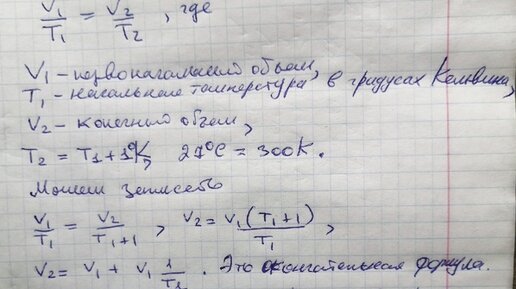 V₁/T₁ = V₂/T₂, где
V₁ - первоначальный объем,
T₁ - начальная температура, в градусах Кельвина,
V₂ - конечный объем,
T₂ = T₁ + 1°K, 27°C = 300K.
Можем записать
V₁/T₁ = V₂/T₁+1, V₂ = V₁(T₁+1)/T₁,
V₂ = V₁ + V₁ 1/T₁. Это окончательная формула.